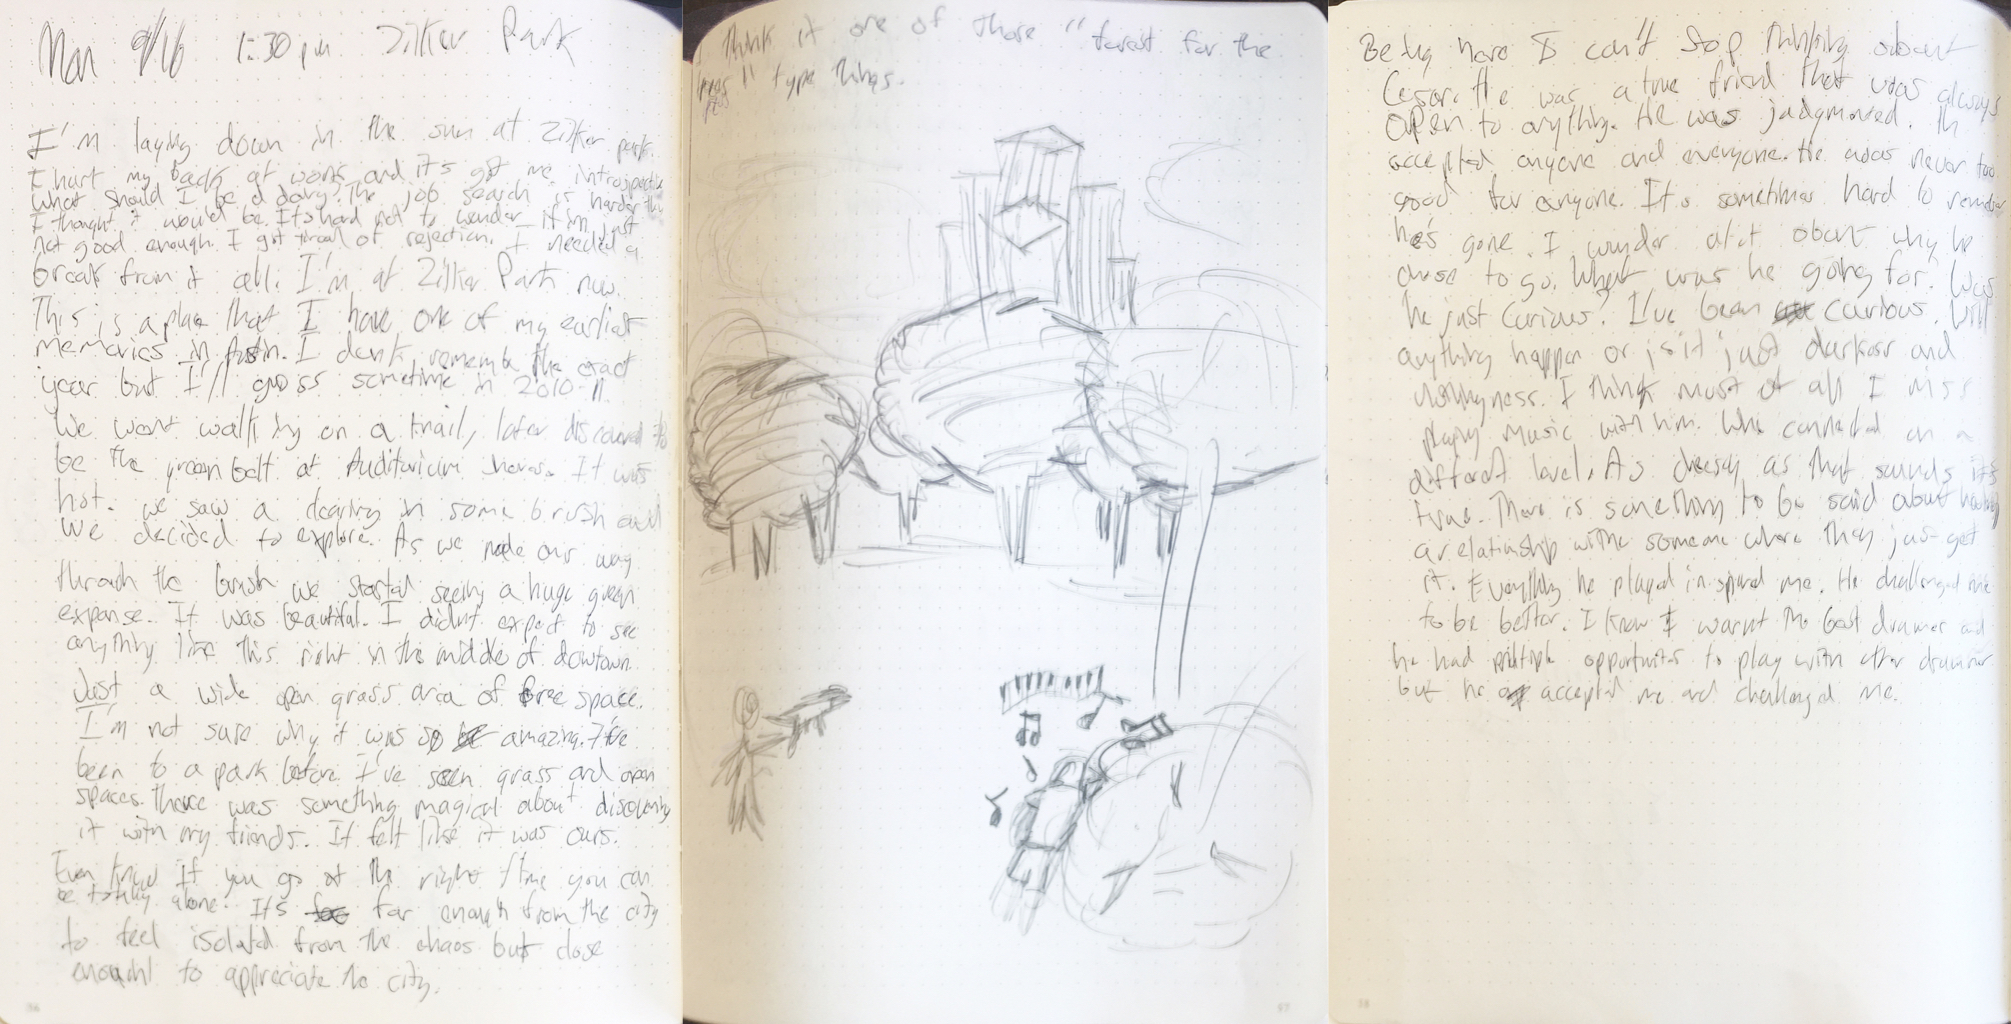 Mon 9/16 1:30 pm Zilker Park
I'm laying down in the sun at Zilker park.
I hurt my back at work and it's got me introspective
what should I be doing? The job search is harder than
I thought it would be. It's hard not to wonder if im just
not good enough. I got tired of rejection. I needed a
break from it all. I'm at Zilker Park now.
This is a place that I have one of my earliest
memories in Austin. I dont remember the exact
year but I'll guess sometime in 2010-11
We went walking on a trail, later discovered to
be the greenbelt at Auditorium shores. It was
hot. we saw a clearing in some brush and
we decided to explore. As we made our way
through the brush we started seeing a huge green
expanse. It was beautiful. I didnt expect to see
anything like this right in the middle of dowtown.
Just a wide open grass area of free space.
I'm not sure why it was so amazing. I've
been to a park before. I've seen grass and open
spaces. there was something magical about discovering
it with my friends. It felt like it was ours.
Even know if you go at the right time you can
be totally alone. Its far enough from the city
to feel isolated from the chaos but close
enough to appreciate the city.
I think it one of those "forest for the
trees" type things.
Being here I can't stop thinking about
Cesar. He was a true friend that was always
open to anything. He was . He
accepted anyone and everyone. He was never too
good for anyone. It's sometimes hard to remember
he's gone. I wonder alot about why he
chose to go. What was he going for. Was
he just curious? I've been curious. Will
anything happen or is it just darkness and
nothingness. I think most of all I miss
playing music with him. We connected on a
different level. As cheesy as that sounds it's
true. There is something to be said about having
a relatinship withe someone where they just get
it. Everything he played inspired me. He challenged me
to be better. I know I warnt the best drummer and
he had multiple opportunites to play with other drummer
but he accepted me and challenged me.